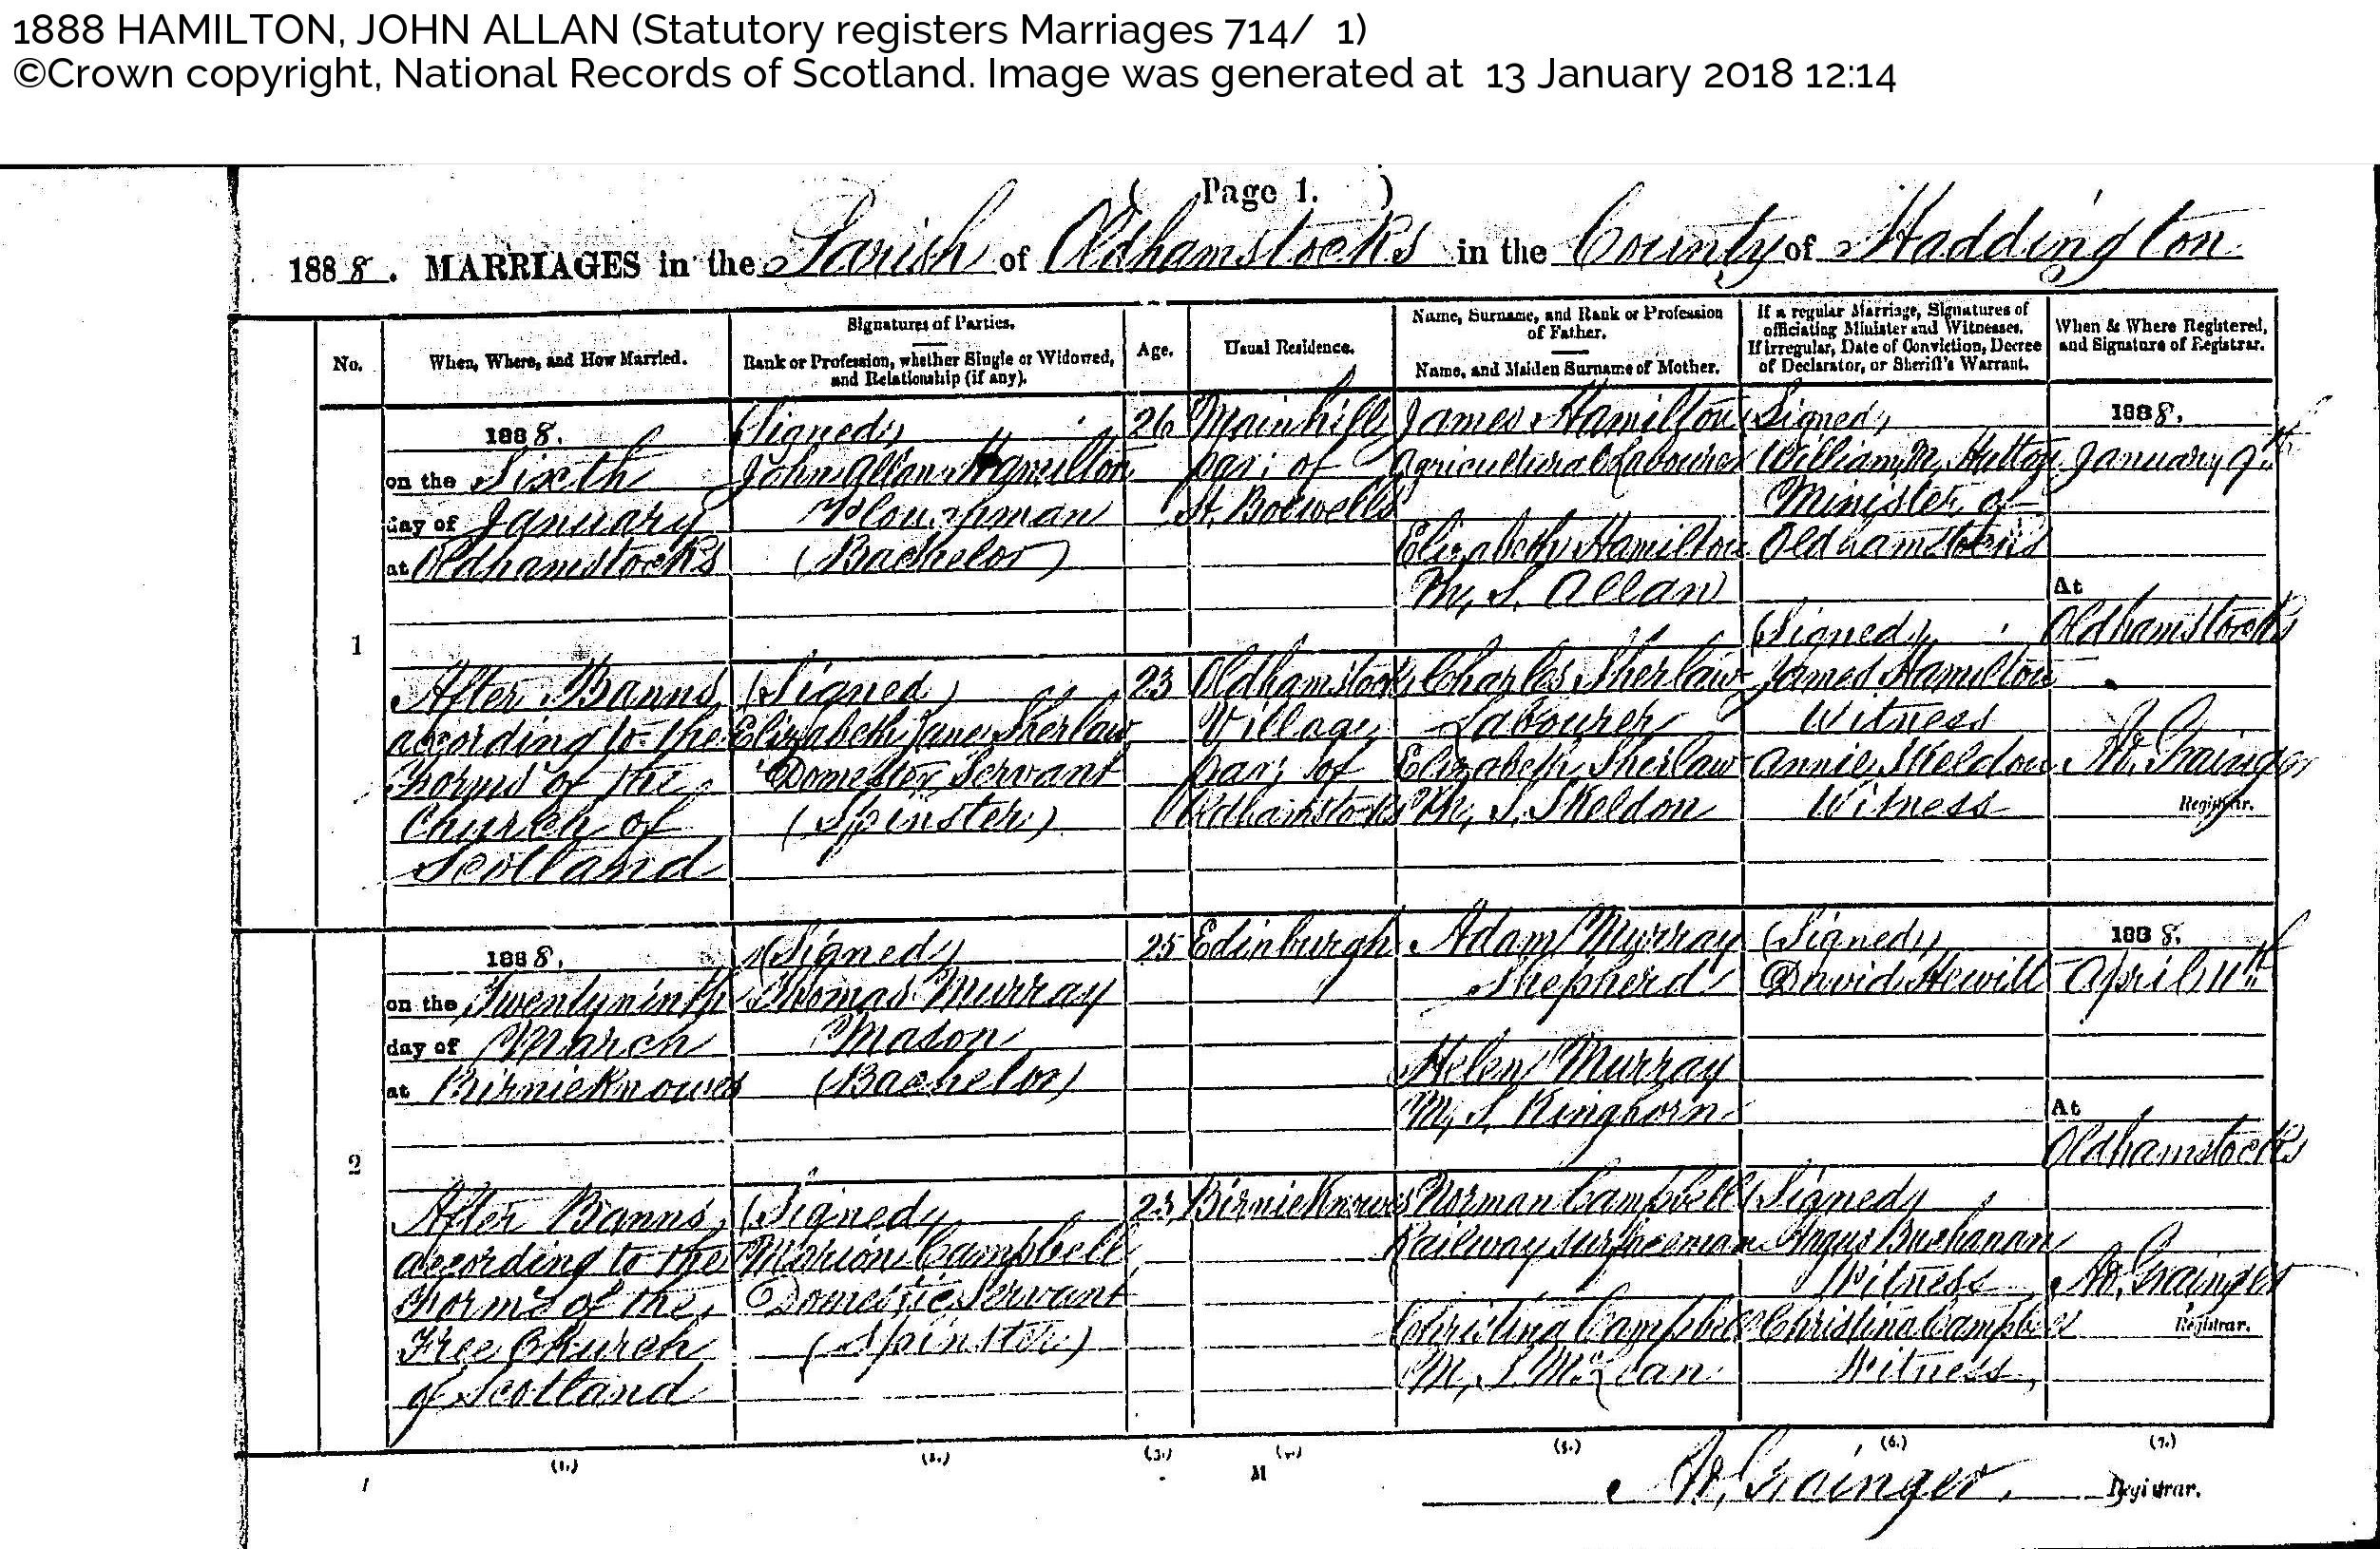 1888 HAMILTON, JOHN ALLAN (Statutory registers Marriages 714/ 1)
©Crown copyright, National Records of Scotland. Image was generated at 13 January 2018 12:14
( Page 1. )
1888. MARRIAGES in the Parish of Oldhamstocks in the County of Haddington
No.
When, Where, and How Married.
Signatures of Parties.
Rank or Profession, whether Single or Widowed,
and Relationship (if any).
Age.
Usual Residence.
Name, Surname, and Rank or Profession
of Father.
Name, and Maiden Surname of Mother.
If a regular Marriage, Signatures of
officiating Minister and Witnesses.
If irregular, Date of Conviction, Decree
of Declarator, or Sheriff's Warrant.
When & Where Registered,
and Signature of Registrar.
1
1888.
on the Sixth
day of January
at Oldhamstocks
After Banns
according to the
Forms of the
Church of
Scotland
(Signed)
John Allan Hamilton
Ploughman
(Bachelor)
(Signed)
Elizabeth Jane Sherlaw
Domestic Servant
(Spinster)
26
23
Mainhill
par: of
St. Boswells
Oldhamstocks
Village
par: of
Oldhamstocks
James Hamilton
Agricultural Labourer
Elizabeth Hamilton
M. S. Allan
Charles Sherlaw
Labourer
Elizabeth Sherlaw
M. S. Skeldon
(Signed)
William M. Hutton
Minister of
Oldhamstocks
(Signed)
James Hamilton
Witness
Annie Skeldon
Witness
1888.
January 9th
At
Oldhamstocks
Grainger
Registrar.
2
1888.
on the Twentyninth
day of March
at Birnieknowes
After Banns
according to the
Forms of the
Free Church
of Scotland
(Signed)
Thomas Murray
Mason
(Bachelor)
(Signed)
Marion Campbell
Domestic Servant
(Spinster)
25
23
Edinburgh
Birnieknowes
Adam Murray
Shepherd
Helen Murray
M. S. Kinghorn
Norman Campbell
Railway Surfaceman
Christina Campbell
M. S. McLean
(Signed)
David Hewitt
(Signed)
Angus Buchanan
Witness
Christina Campbell
Witness
1888.
April 11th
At
Oldhamstocks
Grainger
Registrar.
(1.) (2.) (3.) (4.) (5.) (6.) (7.)
M
Grainger, Registrar.